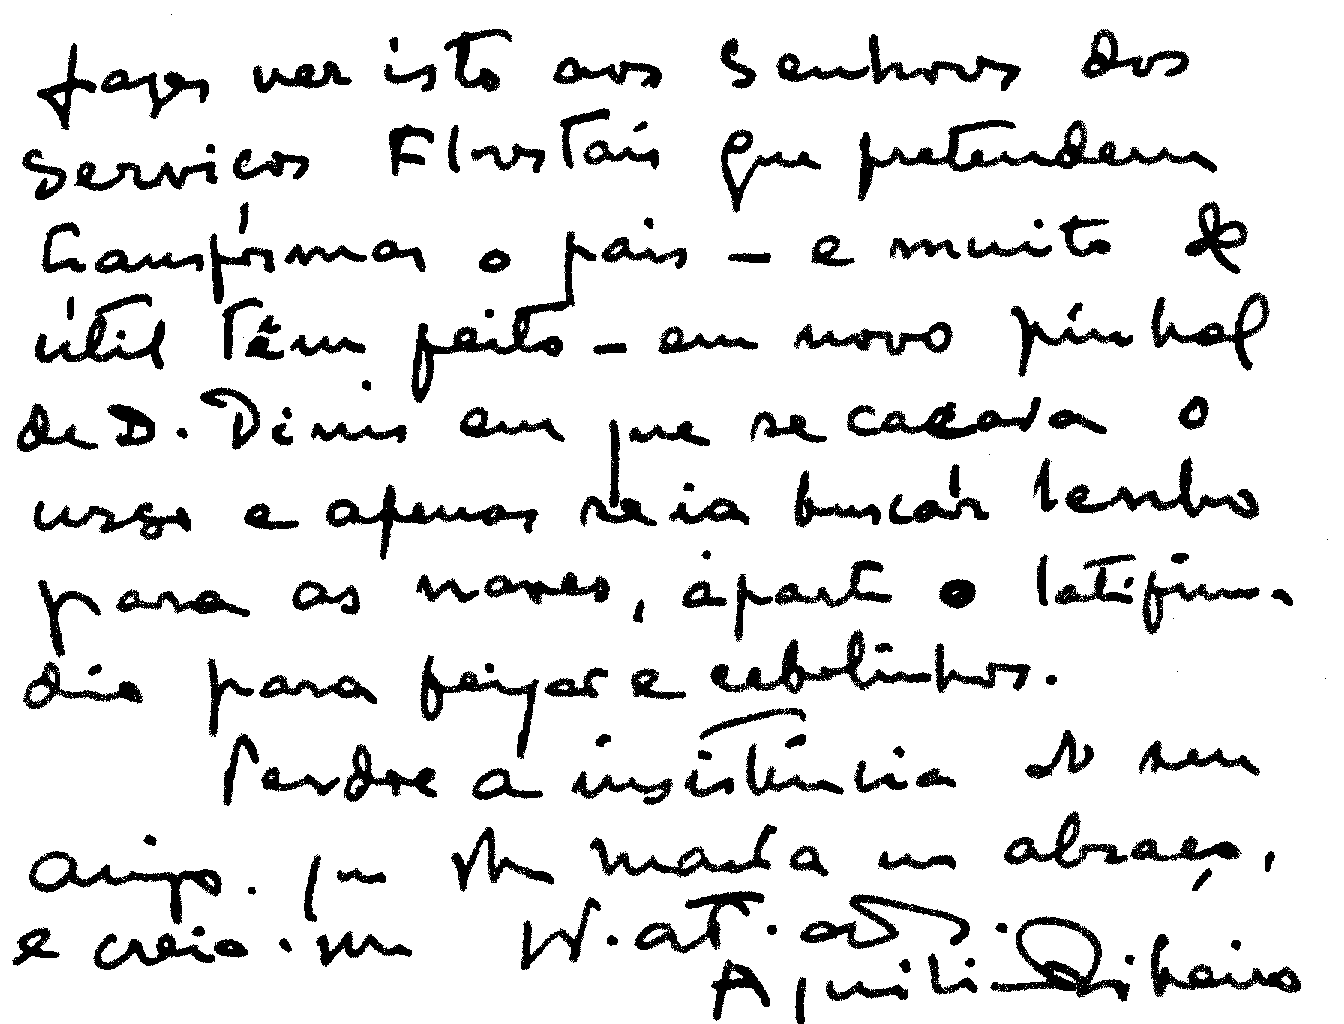 fazer ver isto aos Senhores dos
Serviços Florestais que pretendem
transformar o país – e muito de
útil têm feito – em novo pinhal
de D. Dinis em que se caçava o
urso e apenas se ia buscar lenho
para as naves, àparte o latifún-
dio para feijão e cebolinhos.
Perdoe a insistência do seu
amigo que lhe manda um abraço,
e creia-me At. ad.
Aquilino Ribeiro